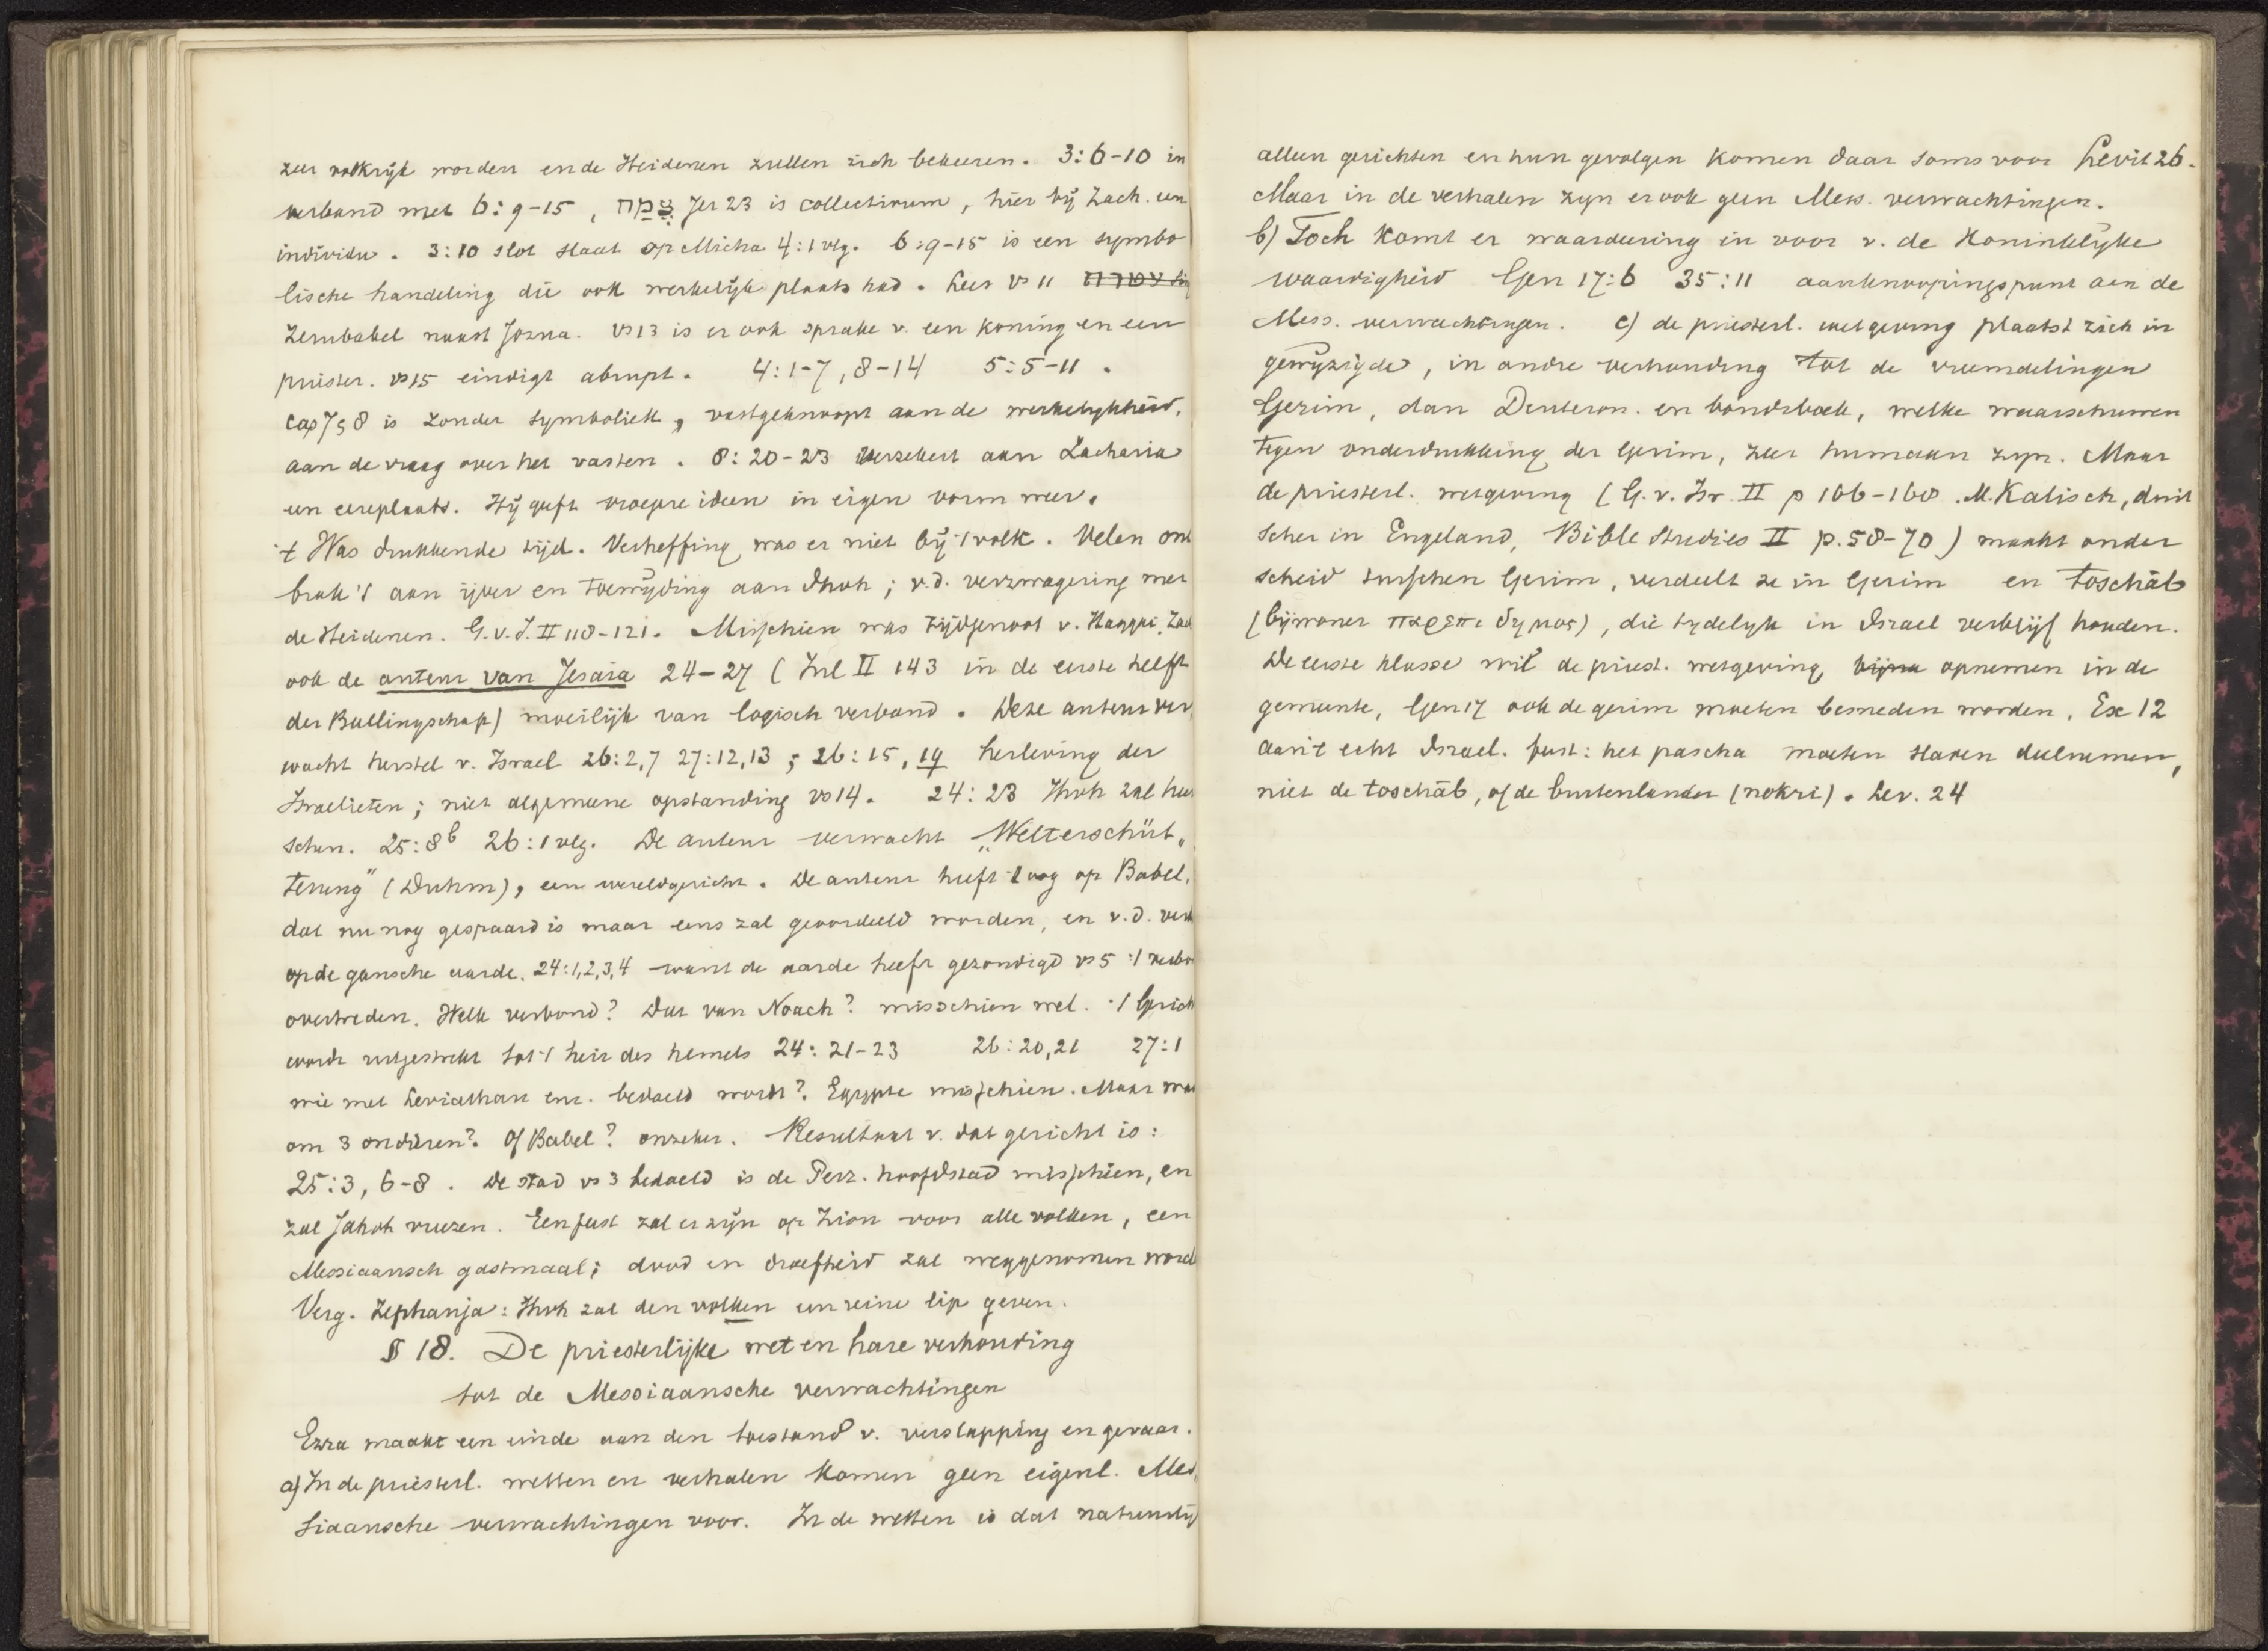 zeer volkrijk worden en de Heidenen zullen zich bekeeren. 3:6-10 in
verband met 6:9-15, צֶמַח Jer 23 is collectivum, hier bij Zach. een
individu. 3:10 slot slaat op Micha 4:1 vlg. 6:9-15 is een symbo
lische handeling die ook werkelijk plaats had. Lees vs 11
Zerubabel naast Jozua. vs 13 is er ook sprake v. een koning en een
priester. vs 15 eindigt abrupt. 4:1-7, 8-14 5:5-11.
cap 7 & 8 is zonder symboliek, vastgeknoopt aan de werkelykheid,
aan de vraag over het vasten. 8:20-23 verzekert aan Zacharia
een eereplaats. Hij geeft vroegere ideen in eigen vorm weer.
't Was drukkende tijd. Verheffing was er niet bij 't volk. Velen ont
brak 't aan ijver en toewijding aan Jhvh; v.d. verzwagering met
de Heidenen. G.v.I. II 118-121. Misschien was tijdgenoot v. Haggai, Zach
ook de auteur van Jesaia 24-27 (Inl II 143 in de eerste helft
der Ballingschap) moeilijk van logisch verband. Deze auteur ver
wacht herstel v. Israel 26:2,7 27:12,13; 26:15, 19 herleving der
Israelieten; niet algemeene opstanding vs 14. 24:23 Jhvh zal heer
schen. 25:8b 26:1 vlg. De auteur verwacht „Welterschüt„
terung" (Duhm), een wereldgericht. De auteur heeft 't oog op Babel,
dat nu nog gespaard is maar eens zal geoordeeld worden, en v.d.
op de gansche aarde. 24:1,2,3,4 want de aarde heeft gezondigd vs 5 't verbo
overtreden. Welk verbond? Dat van Noach? misschien wel. 't Gerich
wordt uitgestrekt tot 't heir des hemels 24:21-23 26:20,21 27:1
wie met Leviathan enz. bedoeld wordt? Egypte misschien. Maar wa
om 3 ondieren? Of Babel? onzeker. Resultaat v. dat gericht is:
25:3, 6-8. De stad vs 3 bedoeld is de Perz. hoofdstad misschien, en
zal Jahvh vreezen. Een feest zal er zijn op Zion voor alle volken, een
Messiaansch gastmaal; dood en droefheid zal weggenomen word
Verg. Zephanja: Jhvh zal den volken een reine lip geven.
§ 18. De priesterlijke wet en hare verhouding
tot de Messiaansche verwachtingen
Ezra maakt een einde aan den toestand v. verslapping en gevaar.
a) In de priesterl. wetten en verhalen komen geen eigenl. Mes
siaansche verwachtingen voor. In de wetten is dat natuurlij
alleen gerichten en hun gevolgen komen daar soms voor Levit 26.
Maar in de verhalen zyn er ook geen Mess. verwachtingen.
b) Toch komt er waardeering in voor v. de Koninklyke
waardigheid Gen 17:6 35:11 aanknoopingspunt aan de
Mess. verwachtingen. c) de priesterl. wetgeving plaatst zich in
gewijzigde, in andre verhouding tot de vreemdelingen
Gerim, dan Deuteron. en bondsboek, welke waarschuwen
tegen onderdrukking der Gerim, zeer humaan zyn. Maar
de priesterl. wetgeving (G.v. Isr. II p 166-168. M. Kalisch, duit
scher in Engeland, Bible Studies II p. 58-70) maakt onder
scheid tusschen Gerim, verdeelt ze in Gerim en toschāb
(bijwoner παρεπιδημος), die tydelyk in Israel verblijf houden.
De eerste klasse wil de priest. wetgeving bijna opnemen in de
gemeente, Gen 17 ook de gerim moeten besneden worden, Ex 12
aan 't echt Israel. feest: het pascha moeten slaven deelnemen,
niet de toschāb, of de buitenlander (nokri). Lev. 24